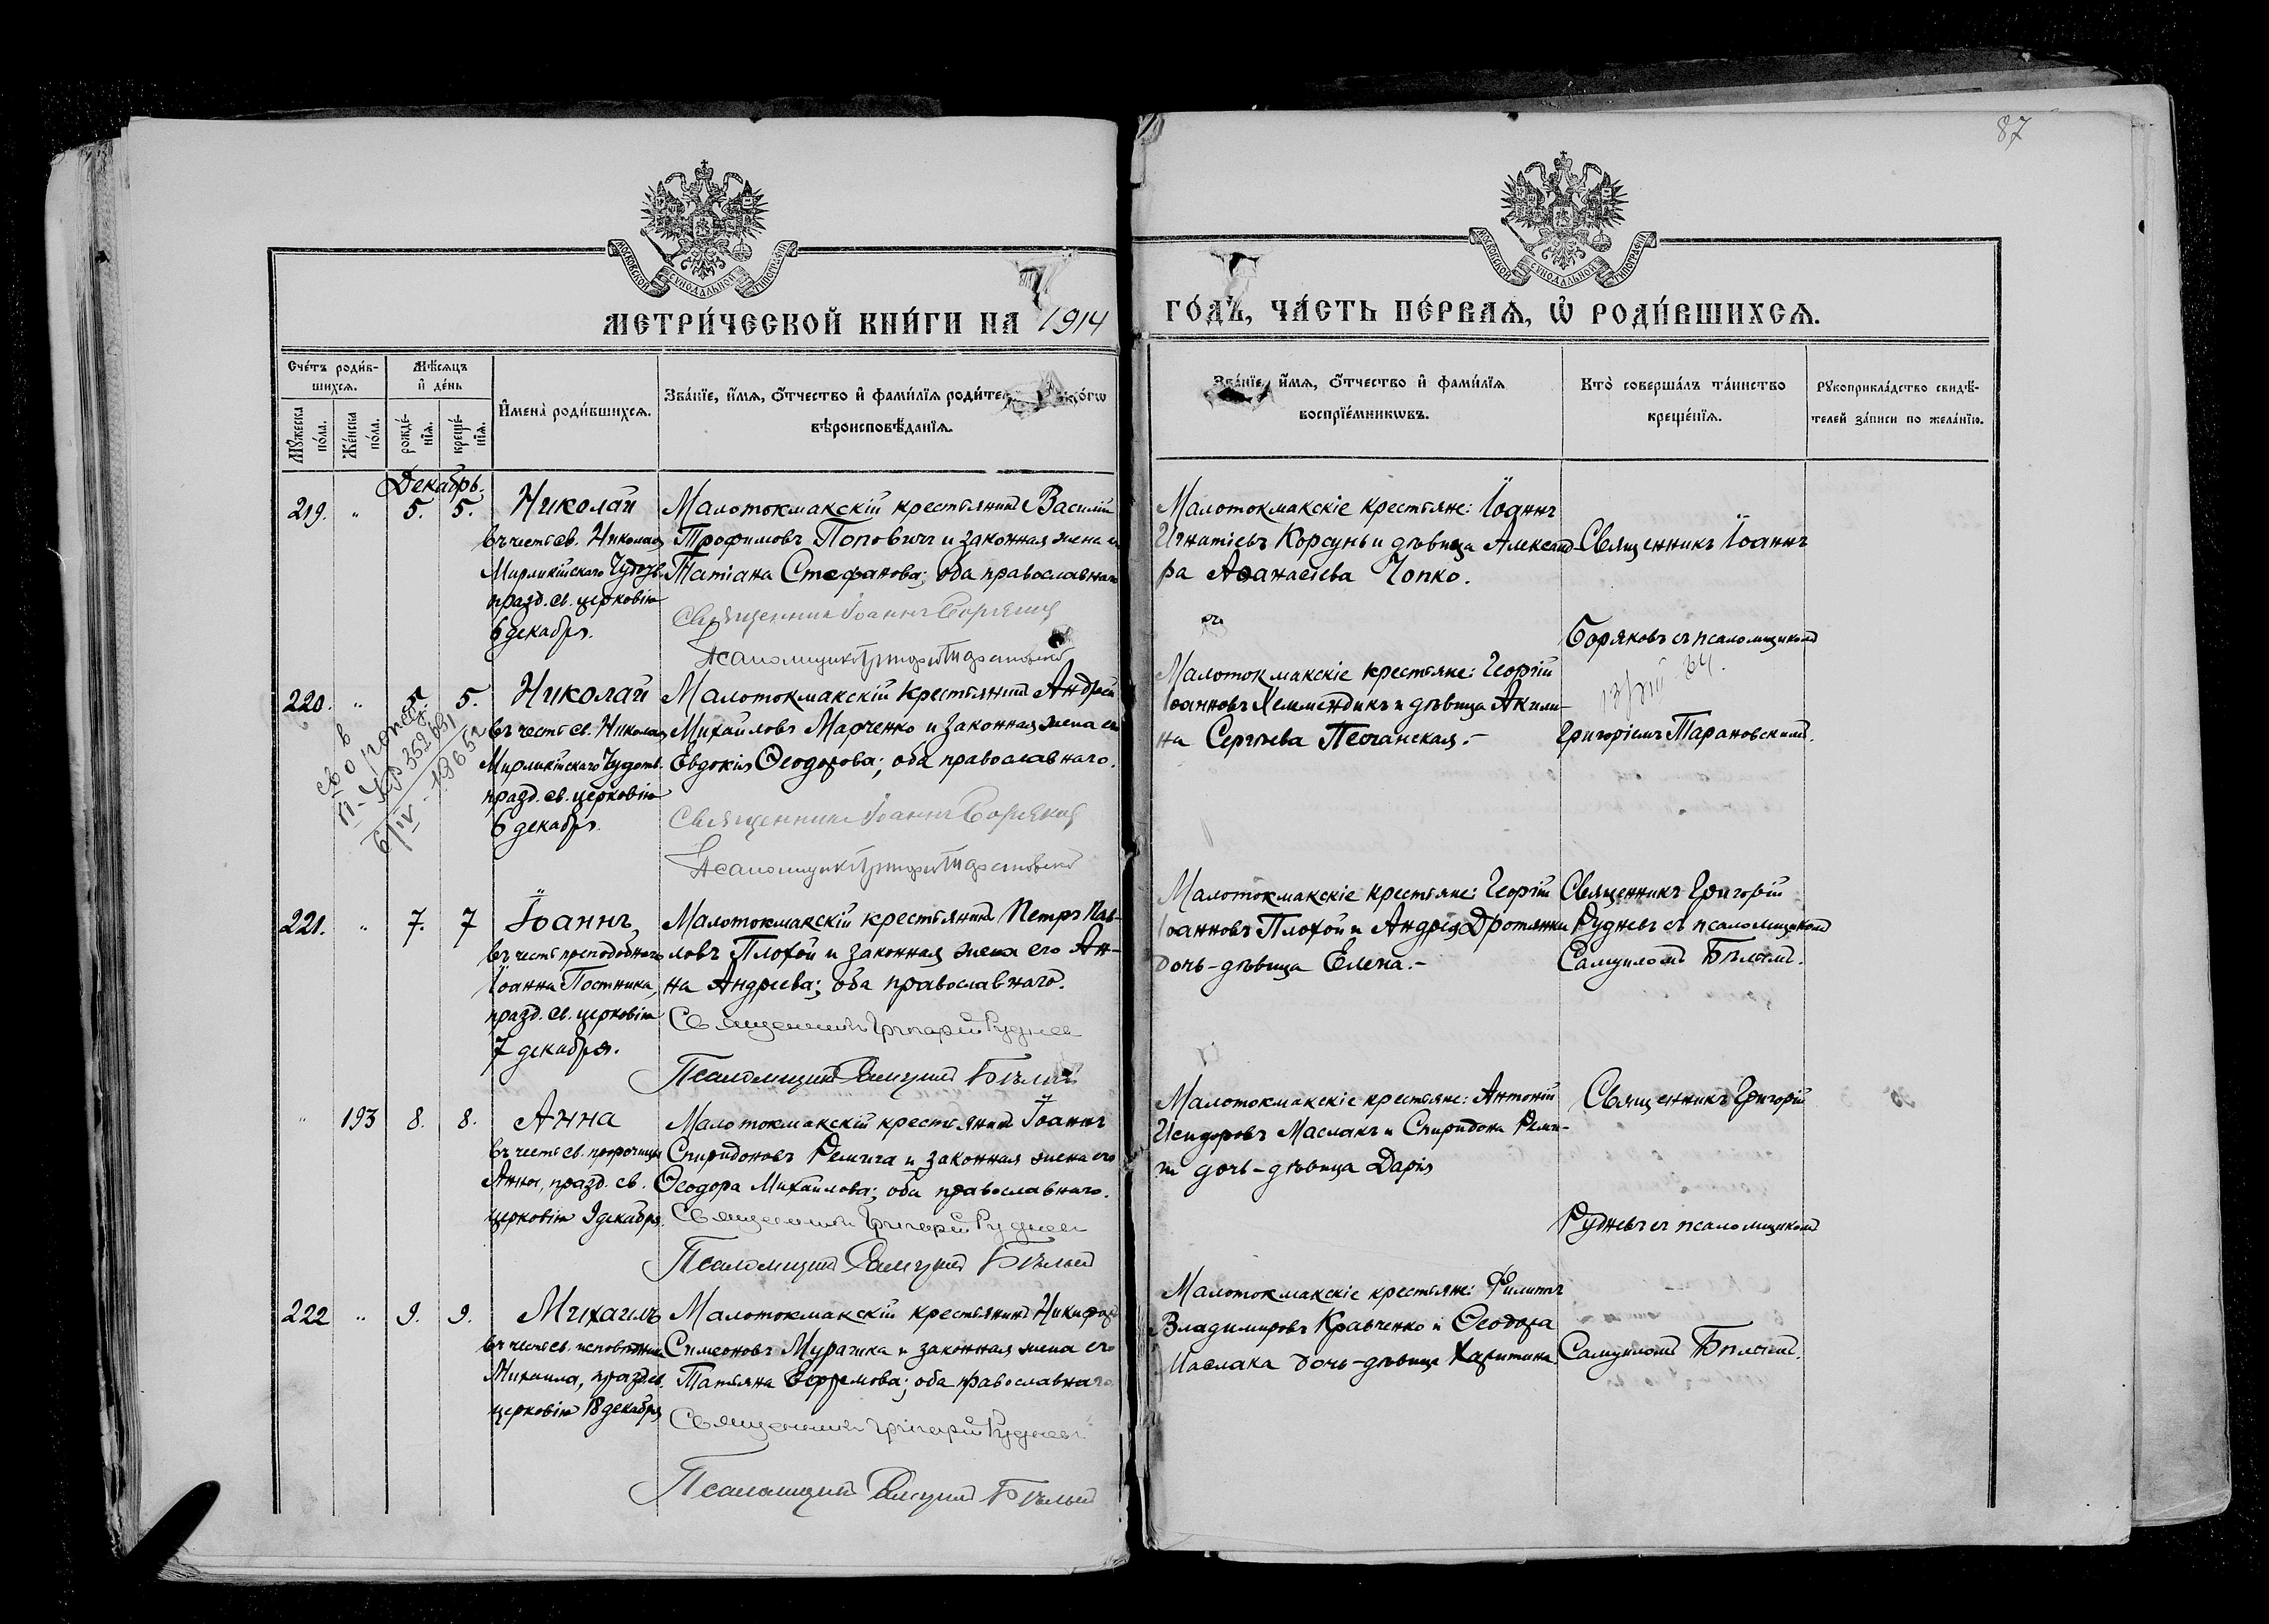 87
МОСКОВСКОЙ СѴНОДАЛЬНОЙ ТИПОГРАФІИ
МОСКОВСКОЙ СѴНОДАЛЬНОЙ ТИПОГРАФІИ
МЕТРИ́ЧЕСКОЙ КНИ́ГИ НА 1914
ГО́ДЪ, ЧА́СТЬ ПЕ́РВАѦ, Ѡ҆ РОДИ́ВШИХСѦ.
Сче́тъ роди́в-
шихсѧ.
Мѣ́сѧцъ
и҆ де́нь
Мꙋ́жеска
по́ла.
Же́нска
по́ла.
рожде́-
нїѧ.
креще́-
нїѧ.
И҆мена̀ роди́вшихсѧ.
Зва́нїе, и҆́мѧ, ѻ҆́тчество и҆ фами́лїѧ роди́те
ко́гѡ
вѣроисповѣ́данїѧ.
Зва́нїе, и҆́мѧ, ѻ҆́тчество и҆ фами́лїѧ
воспрїе́мникѡвъ.
Кто̀ соверша́лъ та́инство
креще́нїѧ.
Рꙋкоприкла́дство свидѣ́-
телей за́писи по жела́нїю.
Декабрь.
219. " 5. 5. Николай
въ честь св. Николая
Мирликійскаго Чудотв.
празд. св. церковію
6 декабря.
Малотокмакскій крестьянинъ Василій
Трофимовъ Поповичъ и законная жена
Татіана Стефанова; оба православнаго
Священникъ Іоаннъ Боряковъ
Псаломщикъ Григорій Тарановскій
Малотокмакскіе крестьяне: Іоаннъ
Игнатіевъ Корсунь и дѣвица Александ-
ра Аѳанасіева Чопко.
Священникъ Іоаннъ
Боряковъ съ псаломщикомъ
220. " 5. 5. Николай
въ честь св. Николая
Мирликійскаго Чудотв.
празд. св. церковію
6 декабря.
Малотокмакскій крестьянинъ Андрей
Михайловъ Марченко и законная жена его
Евдокія Ѳеодорова; оба православнаго.
Священникъ Іоаннъ Боряковъ
Псаломщикъ Григорій Тарановскій
Малотокмакскіе крестьяне: Георгій
Іоанновъ и дѣвица Акили-
на Сергѣева Песчанская.-
Григоріемъ Тарановскимъ.
221. " 7. 7 Іоаннъ,
въ честь преподобнаго
Іоанна Постника,
празд. св. церковію
7 декабря.
Малотокмакскій крестьянинъ Петръ Пав-
ловъ Плохой и законная жена его Ан-
на Андреева; оба православнаго.
Священникъ Григорій Рудневъ
Псаломщикъ Самуилъ Бѣлый
Малотокмакскіе крестьяне: Георгій
Іоанновъ Плохой и Андрея Дротянки
дочь-дѣвица Елена.-
Священникъ Григорій
Рудневъ съ псаломщикомъ
Самуиломъ Бѣлымъ.
" 193 8. 8. Анна
въ честь св. пророчицы
Анны, празд. св.
церковію 9 декабря.
Малотокмакскій крестьянинъ Іоаннъ
Спиридоновъ Ремига и законная жена его
Ѳеодора Михаилова; оба православнаго.
Священникъ Григорій Рудневъ
Псаломщикъ Самуилъ Бѣлый
Малотокмакскіе крестьяне: Антоній
Исидоровъ Маслакъ и Спиридона Реми-
ги дочь-дѣвица Дарія
Священникъ Григорій
Рудневъ съ псаломщикомъ
222 " 9. 9. Михаилъ
въ честь св. исповѣдника
Михаила, празд. св.
церковію 18 декабря
Малотокмакскій крестьянинъ Никифоръ
Симеоновъ Мурашка и законная жена его
Татьяна Ефремова; оба православнаго
Священникъ Григорій Рудневъ
Псаломщикъ Самуилъ Бѣлый
Малотокмакскіе крестьяне: Филиппъ
Владимировъ Кравченко и Ѳеодора
Маслака дочь-дѣвица Харитина.
Самуиломъ Бѣлымъ.